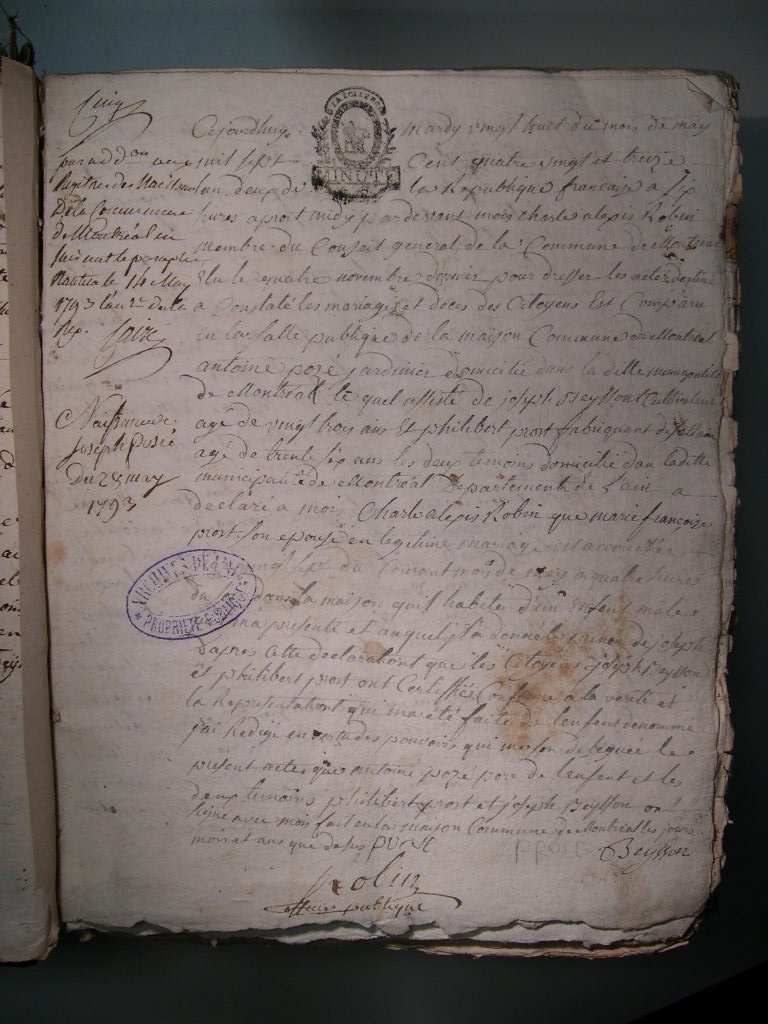 Cinq
par add.on au
Registre des Naissan
De la Commune
de Montréal en
suivant le paraphe
Nantua le 14 May
1793 l'an 2e de la
Rep.
Naissance
Joseph Posé
Du 28 may
1793
LA LOI LE ROI
MINUTE
Cejourdhuy mardy vingt huit du mois de may
mil sept Cent quatre vingt et treize
lan deux de la Republique française a six
heures aproit midy pardevant mois charle alexis Robin
membre du Conseil general de la Commune de Montreal
Elu le quatre novembre dernier pour dresser les actes destiné
a Constaté les mariages et deces des Citoyens Est Comparu
en la salle publique de la maison Commune de Montréal
antoine pozé jardinier domicilié dans la ditte municipalité
de Montréal le quel assisté de joseph Beysson Cultivateur
agé de vingt trois ans Et philibert prost fabriquant de
agé de trente six ans les deux temoins domicilié dan ladite
municipalité de Montréal Departement de Lain a
declaré a mois Charle alexis Robin que marie françoise
prost son epouse en legitime mariage est accouchée
vingt sept du Courant mois de may a quatre heures
du dans la maison quil habite d'un Enfant male
ma presenté et auquel il a donné le prenon de joseph
dapres Cette declarationt que les Citoyens joseph Beysson
et philibert prost ont Certiffiés Conforme a la verité et
la Representationt qui ma été faite de lenfent denommé
jai Redigé en vertu des pouvoirs qui me son delegués le
present acte que antoine pozé pere de lenfent et les
deux temoins philibert prost et joseph Beysson on
signé avec mois fait en la maison Commune de Montréal les jours
mois et ans que desus POZE PROST Beysson
Robin
officier publique
ARCHIVES DE L'AIN
PROPRIÉTÉ PUBLIQUE